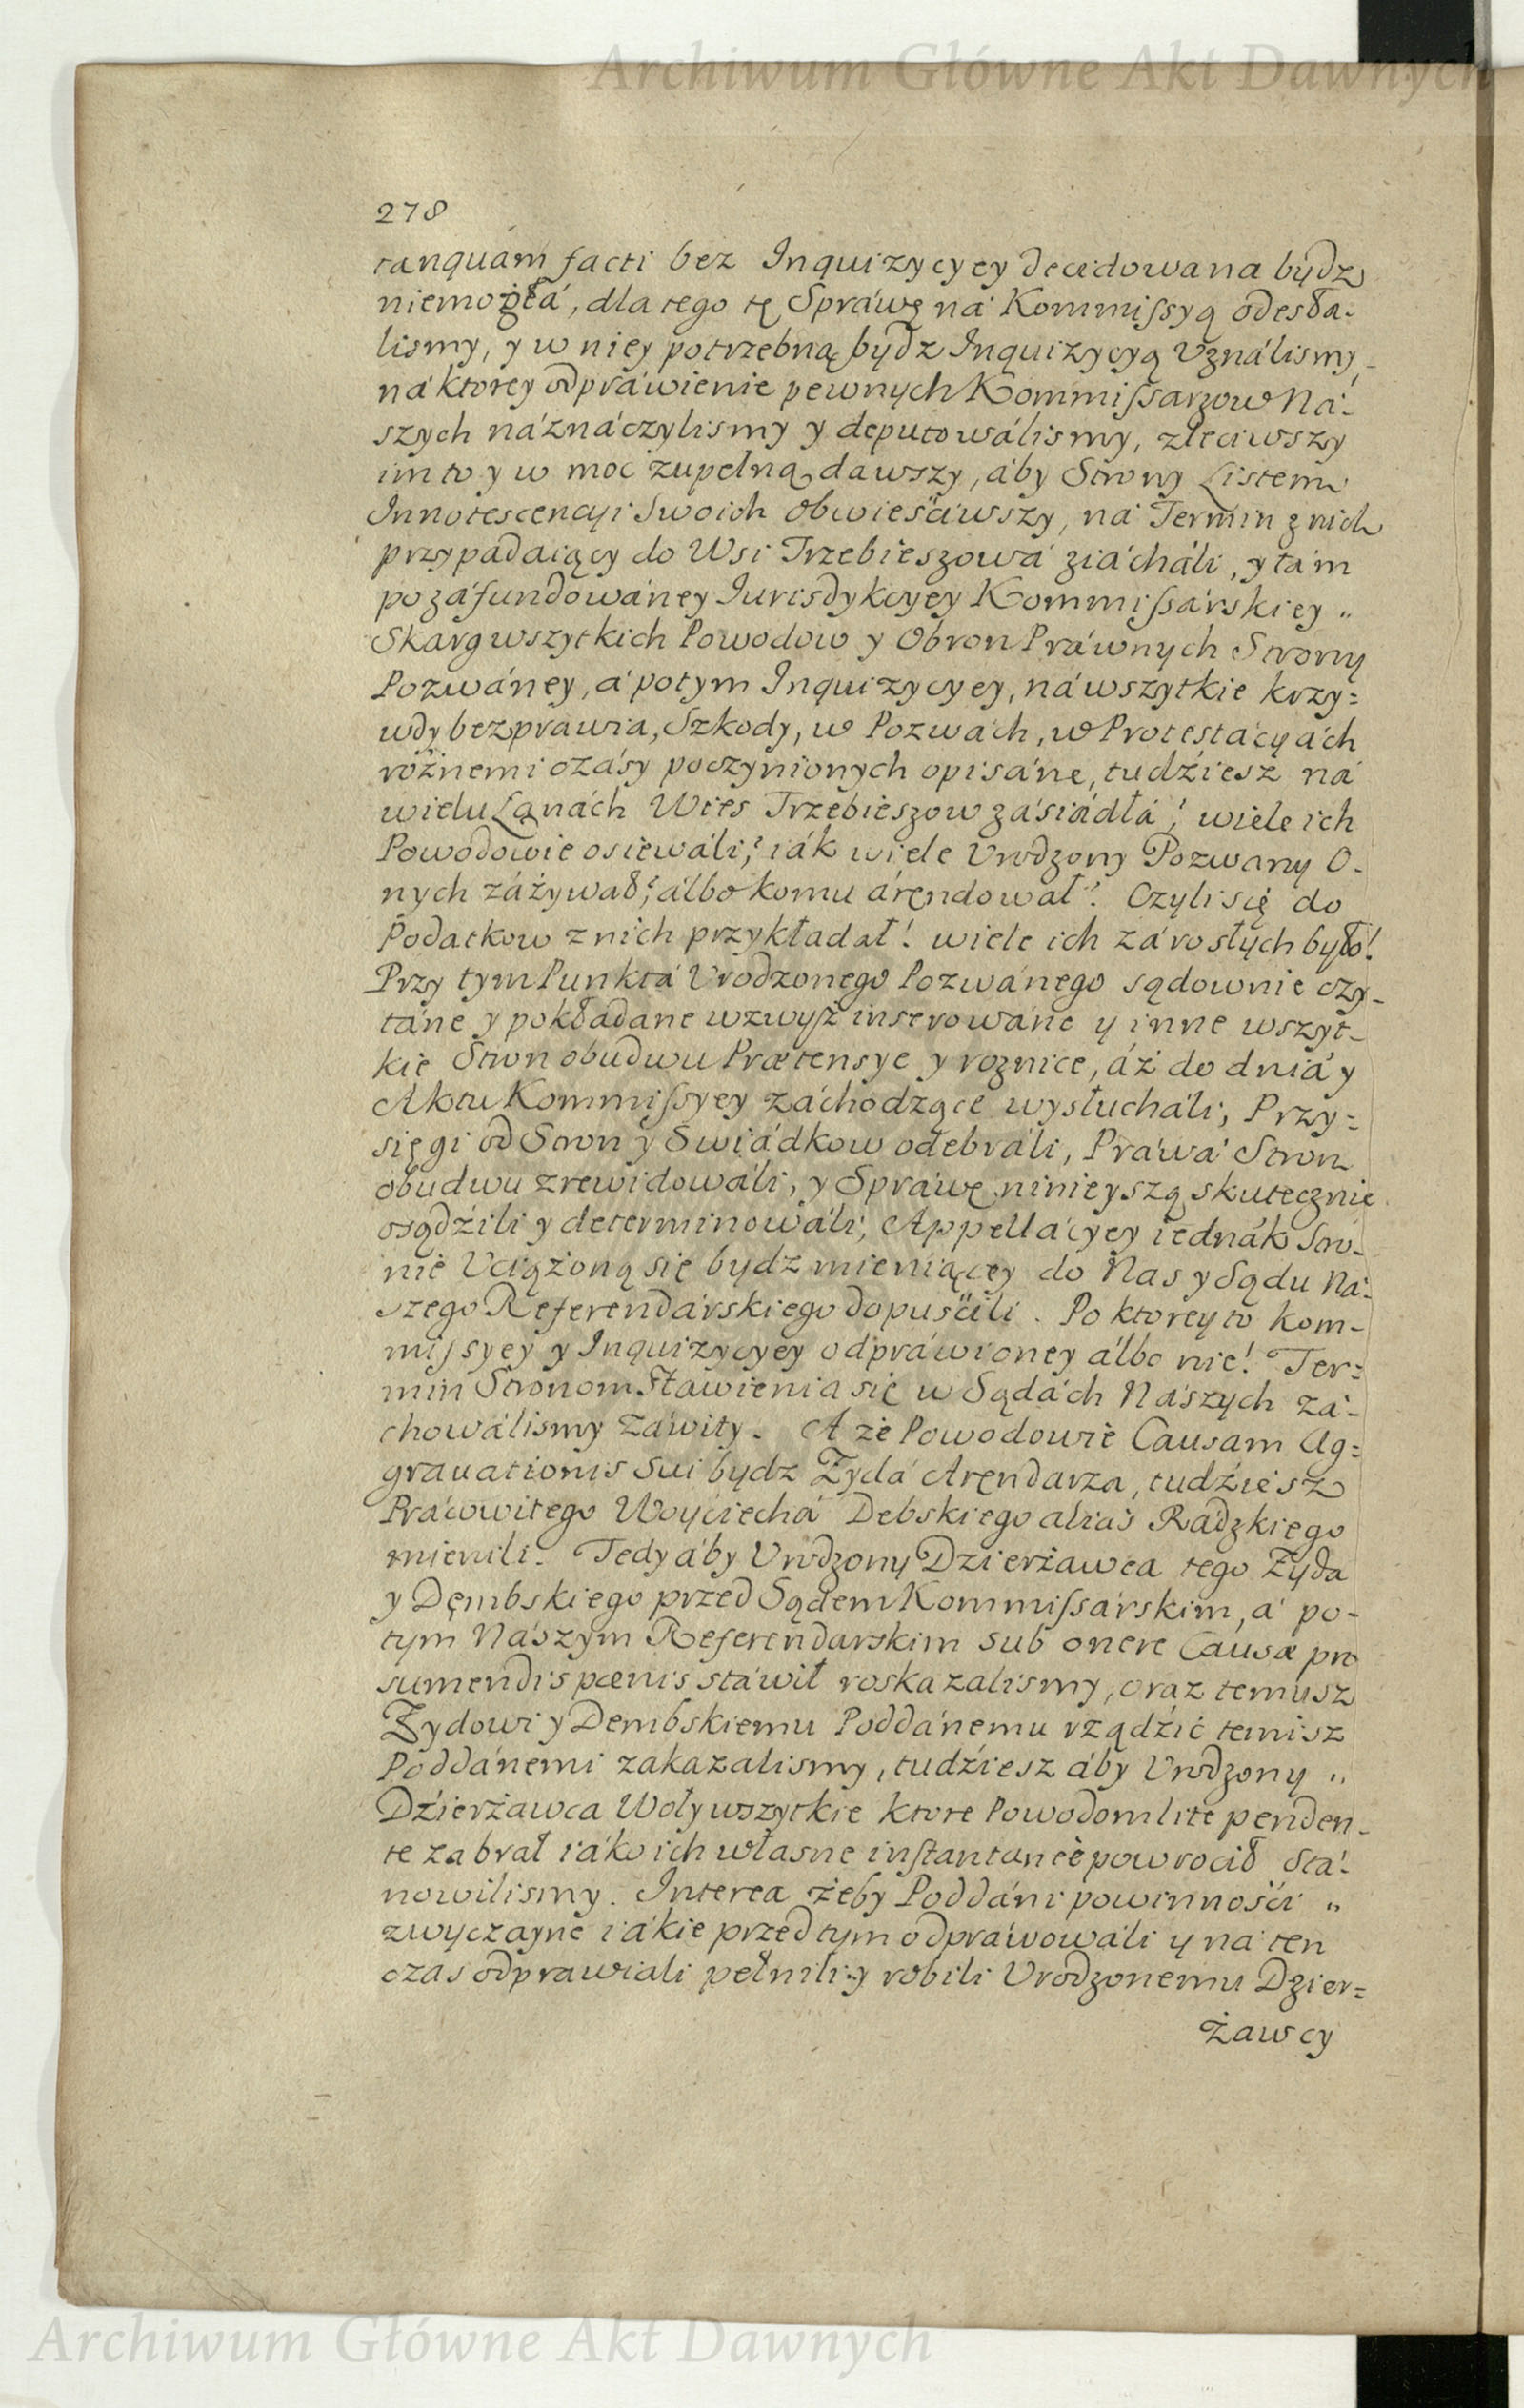 Archiwum Główne Akt Dawnych
278
tanquám facti bez Inquizycyey decidowana bydz
niemogłá, dla tego tę Spráwę ná Kommissyą odesła-
lismy, y w niey potrzebną bydz Inquizycyą Vználismy,
ná ktorey odpráwienie pewnych Kommissarzow Ná-
szych náznáczylismy y deputowálismy, zleciwszy
im to y w moc zupełną dawszy, áby Strony Listem
Innotescencyi swoich obwieściwszy, ná Termin z nich
przypadaiący do Wsi Trzebieszowá ziácháli, y tám
po záfundowáney Iurisdykcyey Kommissárskiey „
Skarg wszytkich Powodow y Obron Práwnych Strony
Pozwáney, á potym Inquizycyey, ná wszytkie krzy=
wdy bezprawia, Szkody, w Pozwách, w Protestácyách
rożnemi czásy poczynionych opisáne, tudźiesz ná
wielu Łanách Wies Trzebieszow zásiádłá! wiele ich
Powodowie osiewáli? iák wiele Vrodzony Pozwany O-
nych záżywał? álbo komu áręndował? Czyli się do
Podatkow z nich przykładał! wiele ich zárosłych było!
Przy tym Punktá Vrodzonego Pozwánego sądownie czy-
táne y pokładane wzwysz inserowáne y inne wszyt-
kie Stron obudwu Prætensye y roznice, áż do dniá y
Aktu Kommissyey záchodzące wysłucháli, Przy=
sięgi od Stron y Swiádkow odebráli, Práwá Stron
obudwu zrewidowáli, y Spráwę ninieyszą skutecznie
osądźili y determinowáli, Appellácyey iednák Stro-
nie Vciążoną się bydz mieniącey do Nas y Sądu Ná-
szego Referendárskiego dopuścili. Po ktorey to Kom-
missyey y Inquizycyey odpráwioney álbo nie! Ter=
min Stronom Stawienia się w Sądách Nászych zá-
chowálismy záwity. A że Powodowie Causam Ag=
grauationis sui bydz Żydá Aręndarza, tudźiesz
Prácowitego Woyciechá Debskiego aliás Rádzkiego
mienili. Tedy áby Vrodzony Dzierżawca tego Żyda
y Dęmbskiego przed Sądem Kommissárskim, á po-
tym Nászym Referendarskim sub onere Causæ pro
sumendis pœnis stáwił roskazalismy, oraz temusz
Żydowi y Dembskiemu Poddánemu rządźić temisz
Poddánemi zakazalismy, tudźiesz áby Vrodzony „
Dźierżawca Woły wszytkie ktore Powodom lite penden-
te zabrał iáko ich własne instantaneè powrocił Stá-
nowilismy. Interea żeby Poddáni powinnośći „
zwyczayne iákie przed tym odpráwowáli y ná ten
czas odprawiali pełnili y robili Vrodzonemu Dzier=
żawcy
Archiwum Główne Akt Dawnych